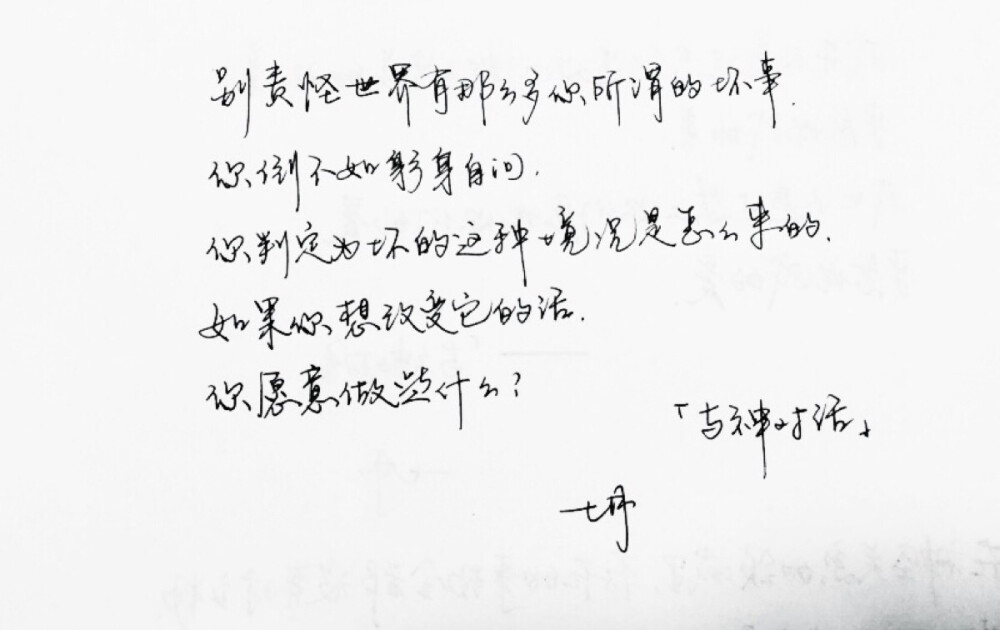 别责怪世界有那么多你所谓的坏事.
你倒不如躬身自问.
你判定为坏的这种境况是怎么来的.
如果你想改变它的话.
你愿意做些什么?
「与神对话」